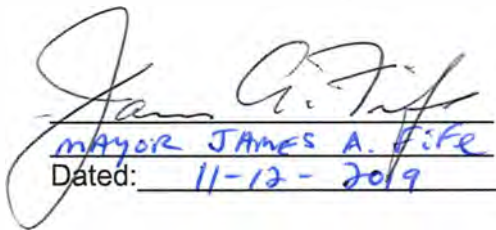 James A. Fife
MAYOR JAMES A. Fife
Dated: 11-12-2019